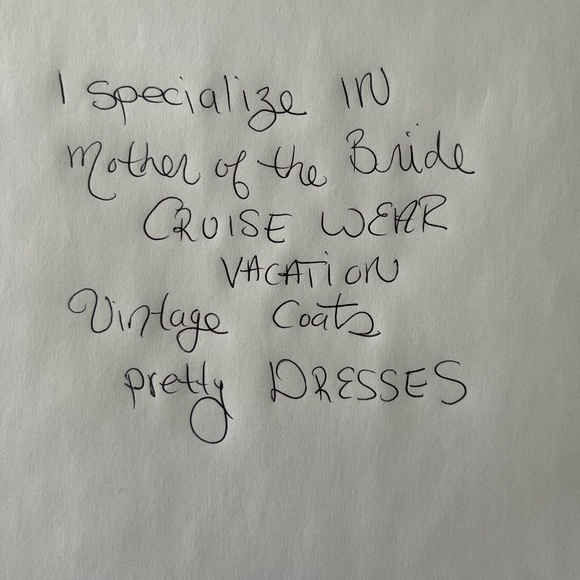 I specialize IN
Mother of the Bride
CRUISE WEAR
VACATiON
Vintage Coats
pretty DRESSES